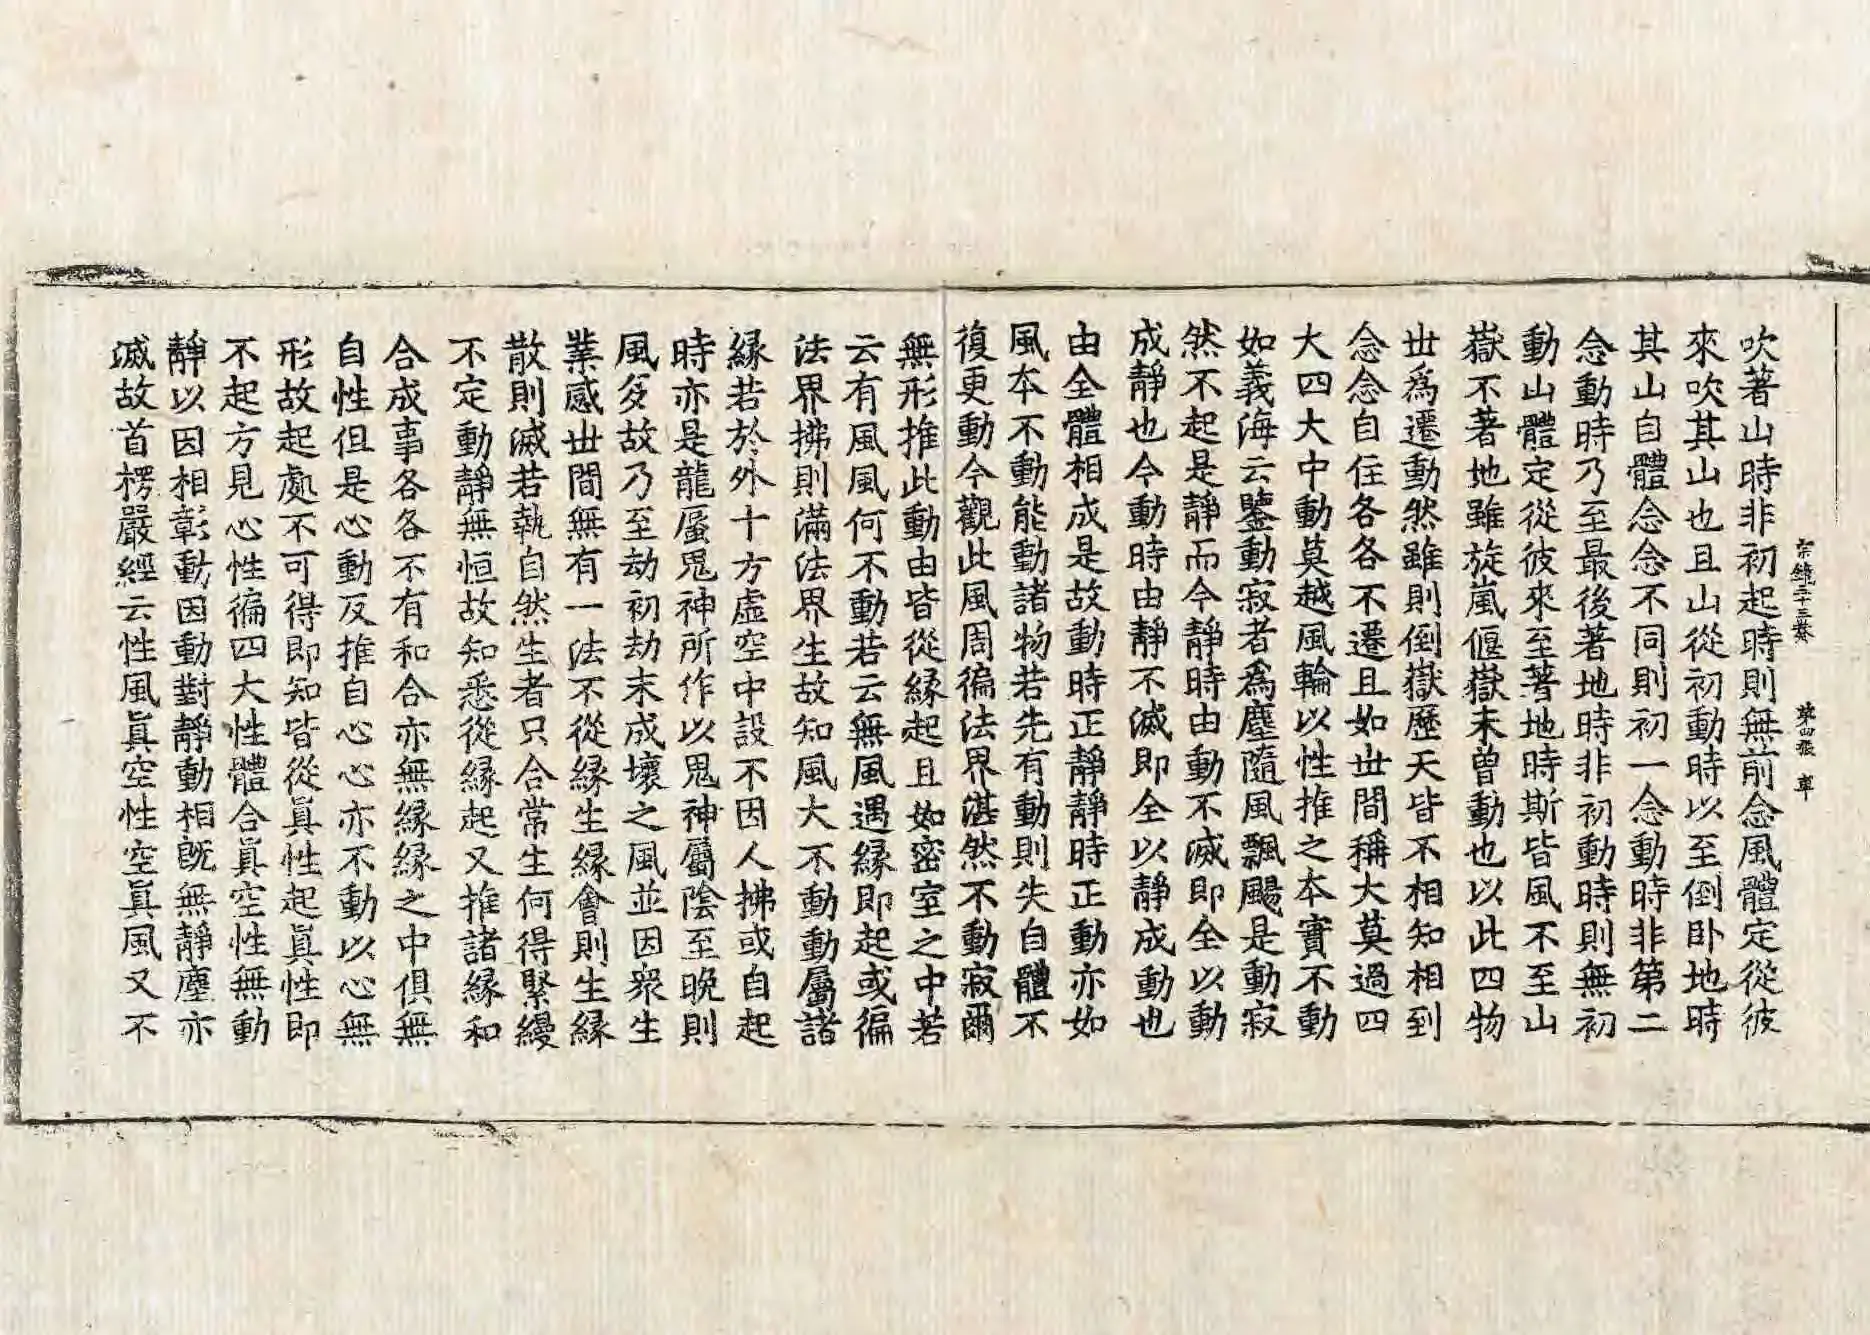 宗鏡三十三卷 第四張 車
吹著山時非初起時則無前念風體定從彼
來吹其山也且山從初動時以至倒卧地時
其山自體念念不同則初一念動時非第二
念動時乃至最後著地時非初動時則無初
動山體定從彼來至著地時斯皆風不至山
嶽不著地雖旋嵐偃嶽未曽動也以此四物
丗爲遷動然雖則倒嶽歷天皆不相知相到
念念自住各各不遷且如丗間稱大莫過四
大四大中動莫越風輪以性推之本實不動
如義海云鑒動寂者爲塵隨風飄颺是動寂
然不起是靜而今靜時由動不滅即全以動
成靜也今動時由靜不滅即全以靜成動也
由全體相成是故動時正靜靜時正動亦如
風本不動能動諸物若先有動則失自體不
復更動今觀此風周徧法界湛然不動寂爾
無形推此動由皆從緣起且如密室之中若
云有風風何不動若云無風遇緣即起或徧
法界拂則滿法界生故知風大不動動屬諸
緣若於外十方虛空中設不因人拂或自起
時亦是龍蜃鬼神所作以鬼神屬陰至晚則
風多故乃至劫初劫末成壞之風並因衆生
業感丗間無有一法不從緣生緣會則生緣
散則滅若執自然生者只合常生何得緊縵
不定動靜無恒故知悉從緣起又推諸緣和
合成事各各不有和合亦無緣緣之中俱無
自性但是心動反推自心心亦不動以心無
形故起處不可得即知皆從眞性起眞性即
不起方見心性徧四大性體合眞空性無動
靜以因相彰動因動對靜動相旣無靜塵亦
滅故首楞嚴經云性風眞空性空眞風又不